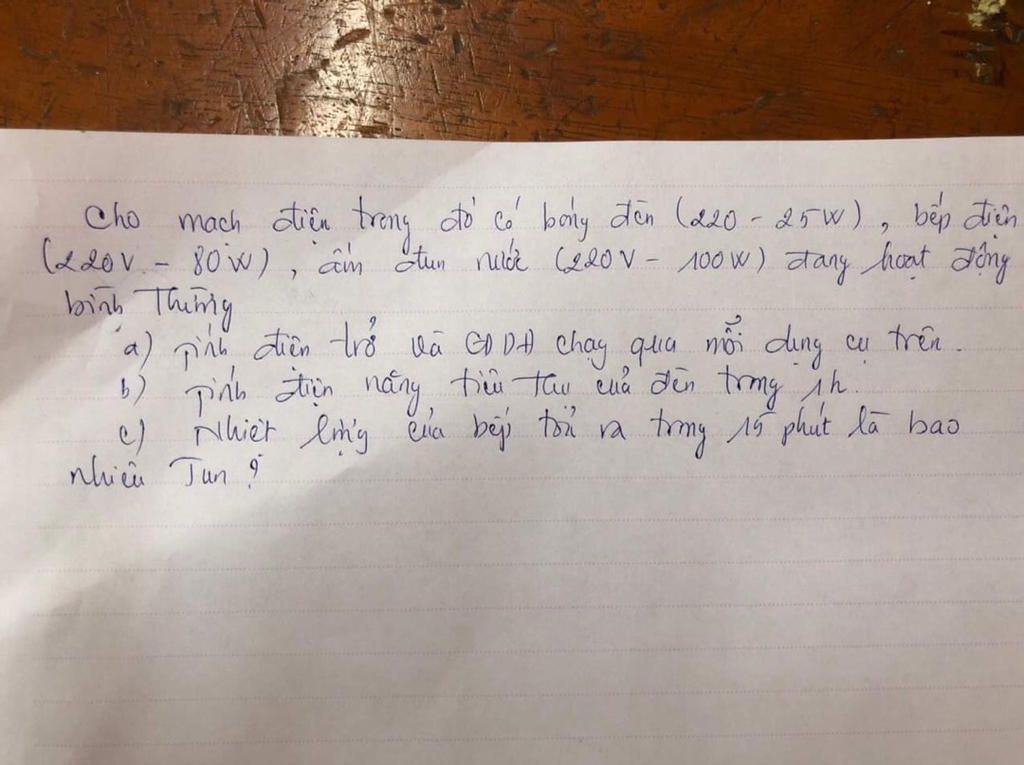 Cho mạch điện trong đó có bóng đèn (220 - 25W), bếp điện
(220V - 80W), ấm đun nước (220V - 100W) đang hoạt động
bình thường
a) Tính điện trở và CĐDĐ chạy qua mỗi dụng cụ trên.
b) Tính điện năng tiêu thụ của đèn trong 1h.
c) Nhiệt lượng của bếp tỏa ra trong 15 phút là bao
nhiêu Jun?